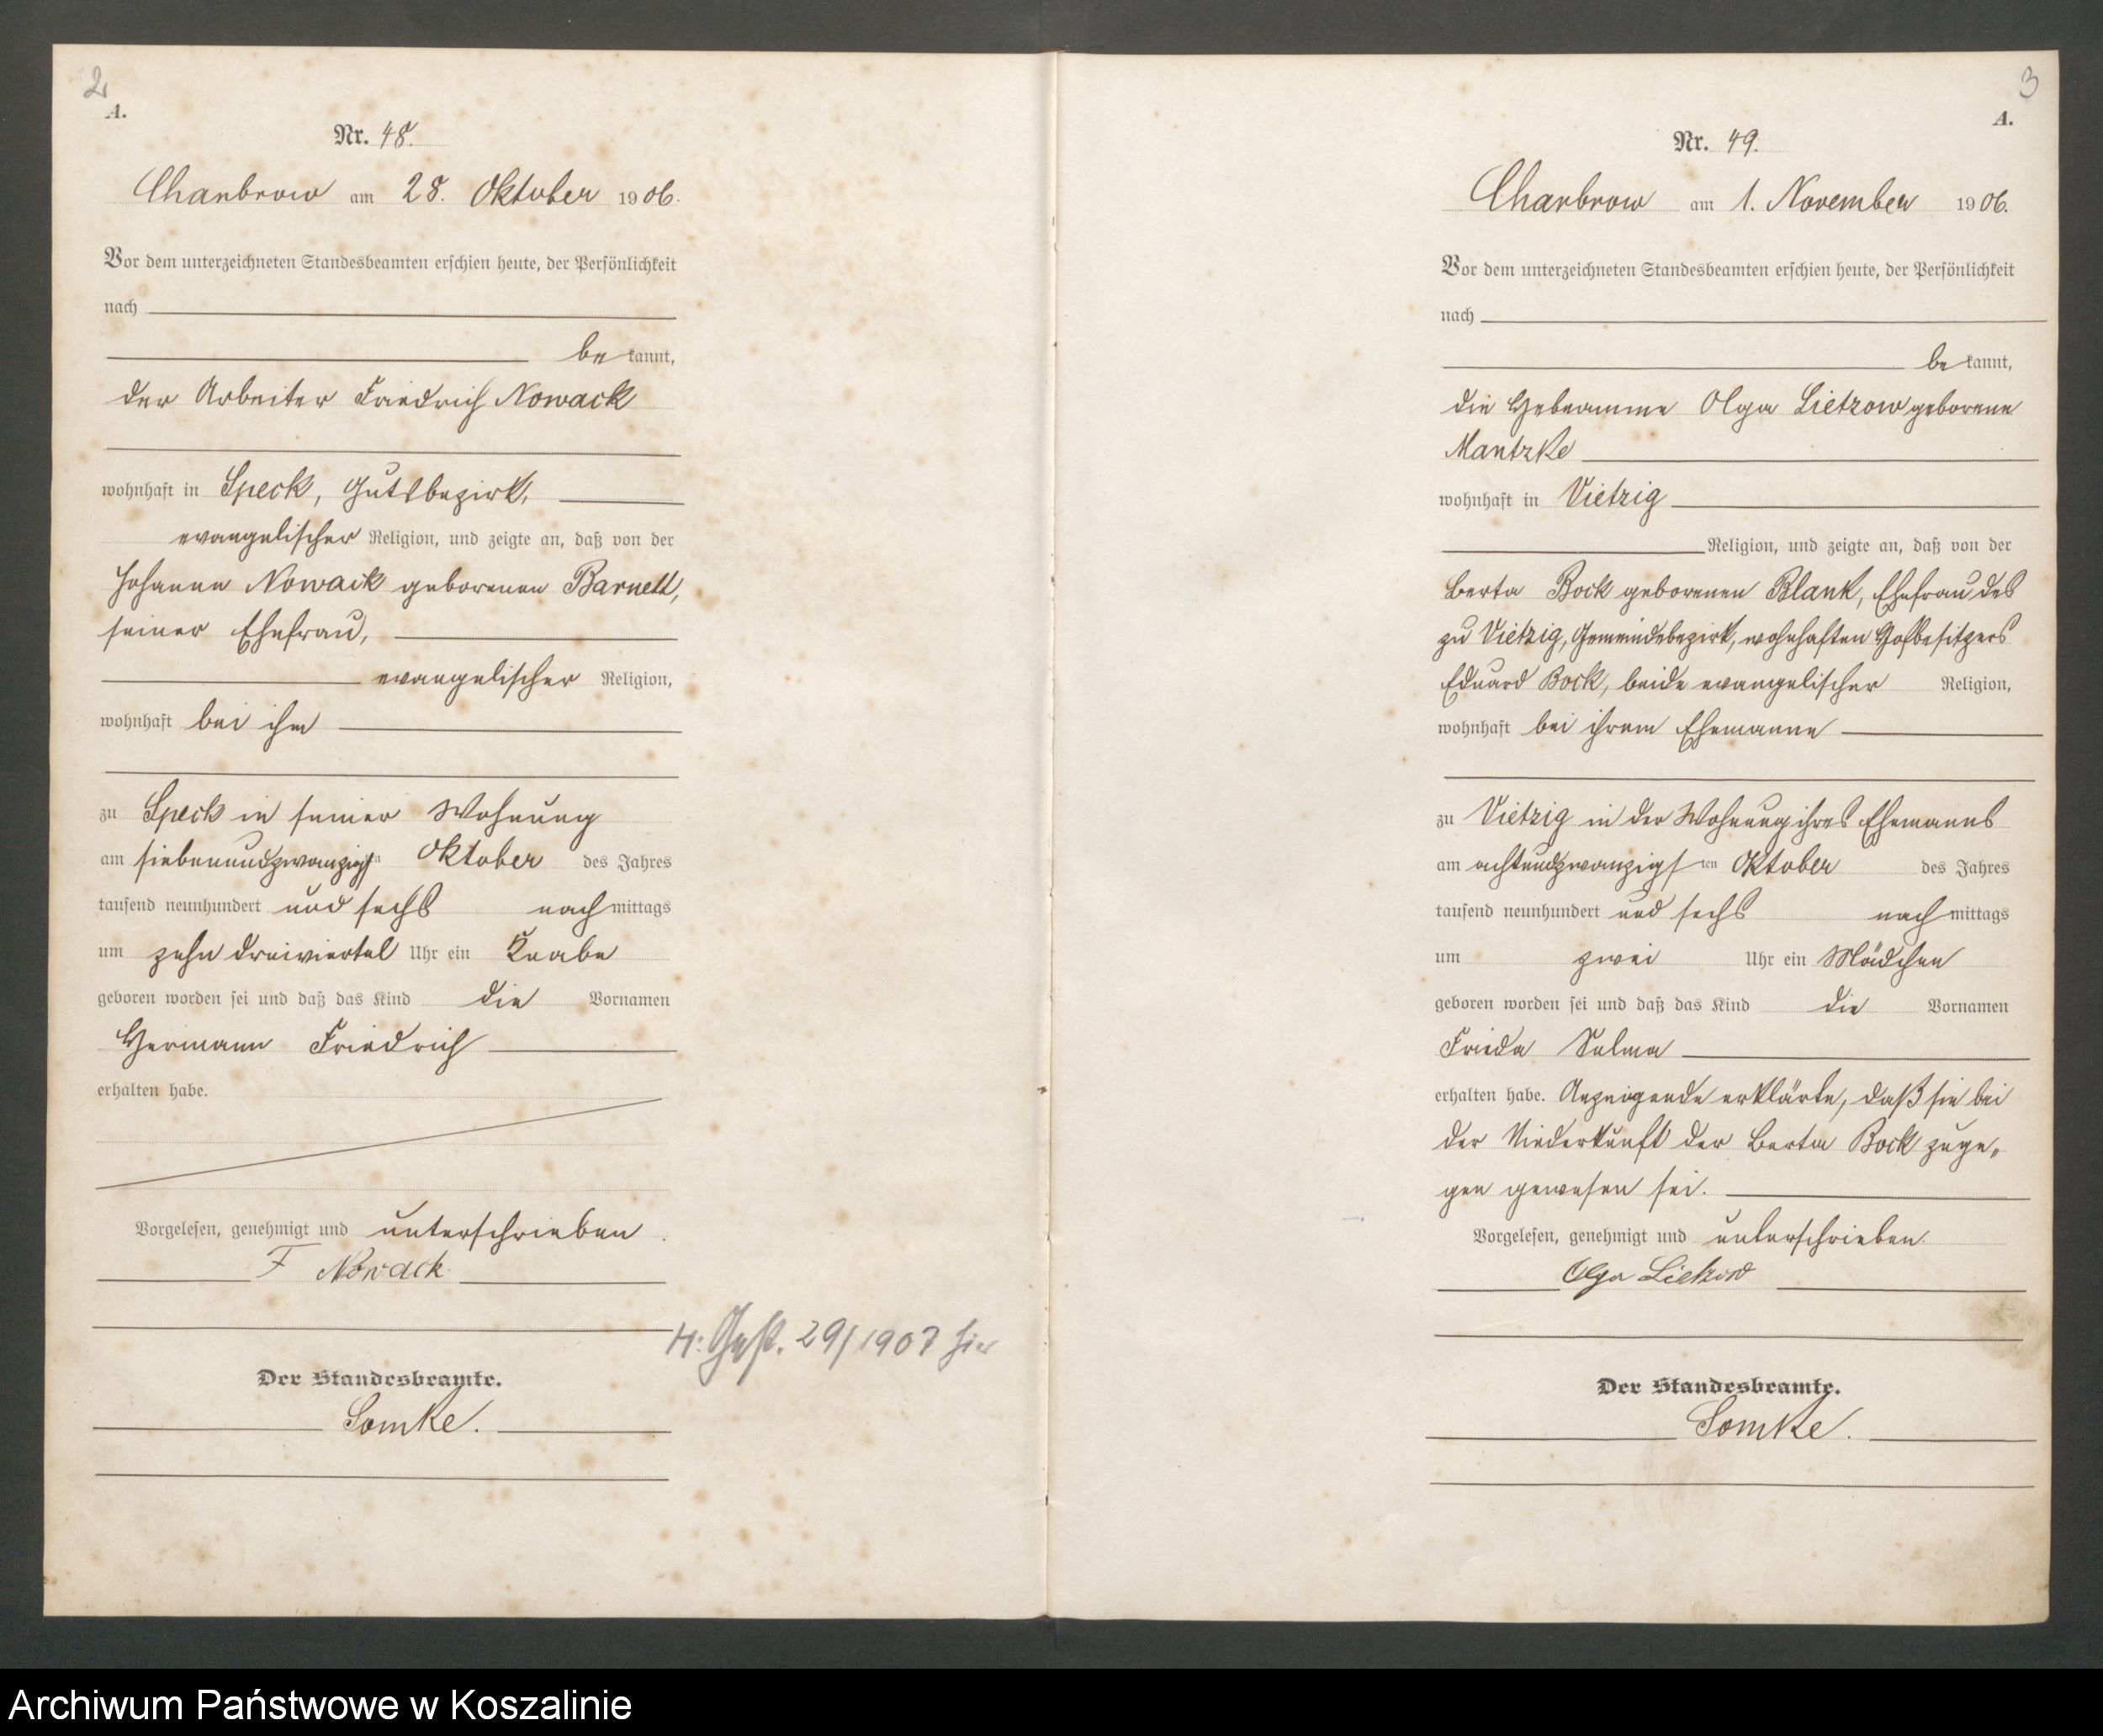 2
A.
Nr. 48.
Charbrow am 28. Oktober 1906.
Vor dem unterzeichneten Standesbeamten erschien heute, der Persönlichkeit
nach
be kannt,
der Arbeiter Friedrich Nowack
wohnhaft in Speck, Gutsbezirk,
evangelischer Religion, und zeigte an, daß von der
Johanne Nowack geborenen Barnett,
seiner Ehefrau,
evangelischer Religion,
wohnhaft bei ihm
zu Speck in seiner Wohnung
am siebenundzwanzigsten Oktober des Jahres
tausend neunhundert und sechs nach mittags
um zehn dreiviertel Uhr ein Knabe
geboren worden sei und daß das Kind die Vornamen
Hermann Friedrich
erhalten habe.
Vorgelesen, genehmigt und unterschrieben.
F Nowack
H: Gest. 29/1907 hier
Der Standesbeamte.
Lomke.
3
A.
Nr. 49.
Charbrow am 1. November 1906.
Vor dem unterzeichneten Standesbeamten erschien heute, der Persönlichkeit
nach
be kannt,
die Hebeamme Olga Lietzow geborene
Mantzke
wohnhaft in Vietzig
Religion, und zeigte an, daß von der
Berta Bock geborenen Blank, Ehefrau des
zu Vietzig, Gemeindebezirk, wohnhaften Hofbesitzers
Eduard Bock, beide evangelischer Religion,
wohnhaft bei ihrem Ehemanne
zu Vietzig in der Wohnung ihres Ehemanns
am achtundzwanzigsten Oktober des Jahres
tausend neunhundert und sechs nach mittags
um zwei Uhr ein Mädchen
geboren worden sei und daß das Kind die Vornamen
Frieda Selma
erhalten habe. Anzeigende erklärte, daß sie bei
der Niederkunft der Berta Bock zuge„
gen gewesen sei.
Vorgelesen, genehmigt und unterschrieben.
Olga Lietzow
Der Standesbeamte.
Lomke.
Archiwum Państwowe w Koszalinie